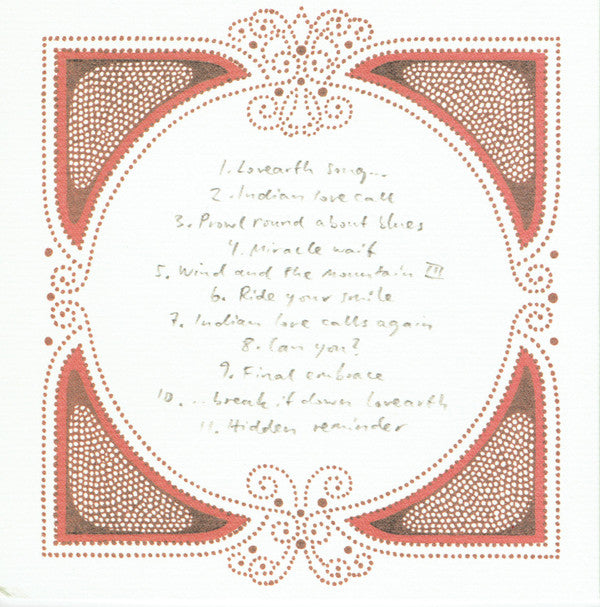 1. Lovearth song...
2. Indian love call
3. Prowl round about blues
4. Miracle waif
5. Wind and the mountain III
6. Ride your smile
7. Indian love calls again
8. Can you?
9. Final embrace
10. ...break it down lovearth
11. Hidden reminder